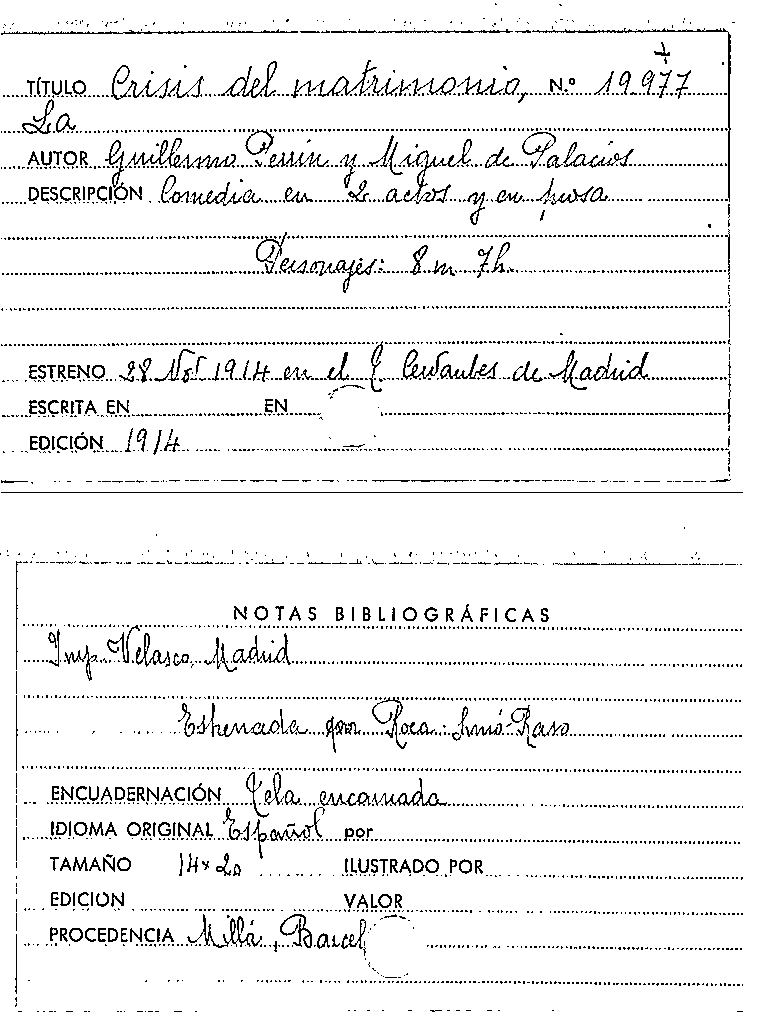 TÍTULO Crisis del matrimonio, N.º 19.977
La
AUTOR Guillermo Perrín y Miguel de Palacios
DESCRIPCIÓN Comedia en 2 actos y en prosa
Personajes: 8 m 7 h.
ESTRENO 28 Nov 1914 en el T. Cervantes de Madrid
ESCRITA EN EN
EDICIÓN 1914
NOTAS BIBLIOGRÁFICAS
Imp. Velasco, Madrid
Estrenada por Roca: Simó-Raso
ENCUADERNACIÓN Tela encarnada
IDIOMA ORIGINAL Español por
TAMAÑO 14 x 20 ILUSTRADO POR
EDICION VALOR
PROCEDENCIA Millá, Barcel